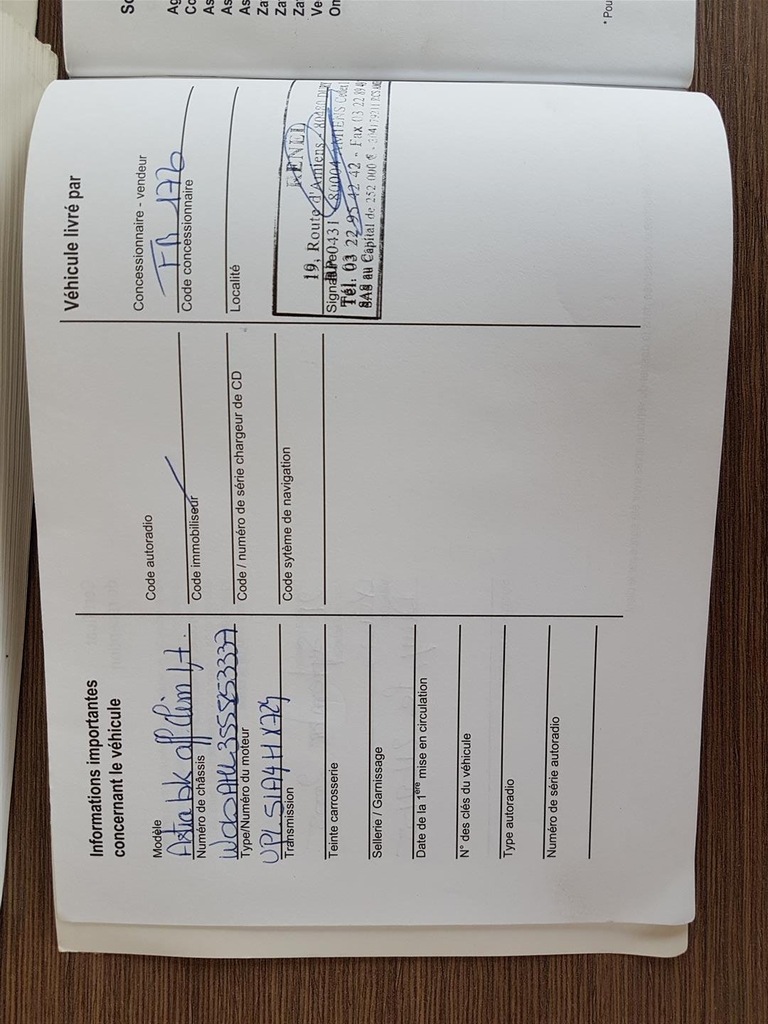 Informations importantes
concernant le véhicule
Modèle
Astra bk aff Clim 1,7.
Numéro de châssis
Type/Numéro du moteur
UPL51A4HX724
Transmission
Teinte carrosserie
Sellerie / Garnissage
Date de la 1ère mise en circulation
N° des clés du véhicule
Type autoradio
Numéro de série autoradio
Code autoradio
Code immobiliseur
Code / numéro de série chargeur de CD
Code sytème de navigation
Véhicule livré par
Concessionnaire - vendeur
FR 176
Code concessionnaire
Localité
19, Route d'Amiens - 80480
Signature 0431 80004 AMIENS Cedex 1
Tél. 03 22 95 42 42 - Fax 03 22 89
SAS au Capital de 252 000 € -
So
Ag
Co
As
As
As
Za
Za
Za
Ve
On
* Pou